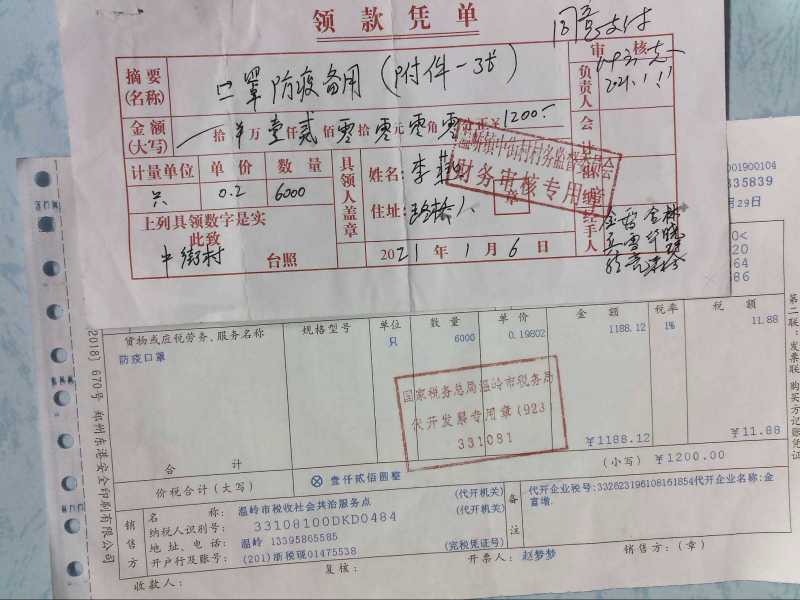 领款凭单
同意支付
审核
摘要
(名称)
口罩防疫备用(附件一3张)
负责人
2021.1.
金额
(大写)
拾 万 壹仟 贰佰 零拾 零元 零角 零 正¥1200.-
会计
计量单位 单价 数量
只 0.2 6000
具领人盖章
姓名: 李
住址:
上列具领数字是实
此致
中街村 台照
2021年1月6日
经手人
村务监督委员会
财务审核专用章
001900104
335839
月29日
0<
20
64
86
货物或应税劳务、服务名称 规格型号 单位 数量 单价 金额 税率 税额
防疫口罩 只 6000 0.19802 1188.12 1% 11.88
国家税务总局温岭市税务局
代开发票专用章(923)
331081
合计 ¥1188.12 ¥11.88
价税合计(大写) ⊗壹仟贰佰圆整 (小写) ¥1200.00
销售方
名称: 温岭市税收社会共治服务点 (代开机关)
纳税人识别号: 33108100DKD0484 (代开机关)
地址、电话: 温岭 13395865585
开户行及账号: (201)浙税现01475538 (完税凭证号)
备注
代开企业税号:332623196108161854代开企业名称:金
富增.
收款人: 复核: 开票人: 赵梦梦 销售方:(章)
第二联:发票联 购买方记账凭证
[2018] 670号 郑州东港安全印刷有限公司